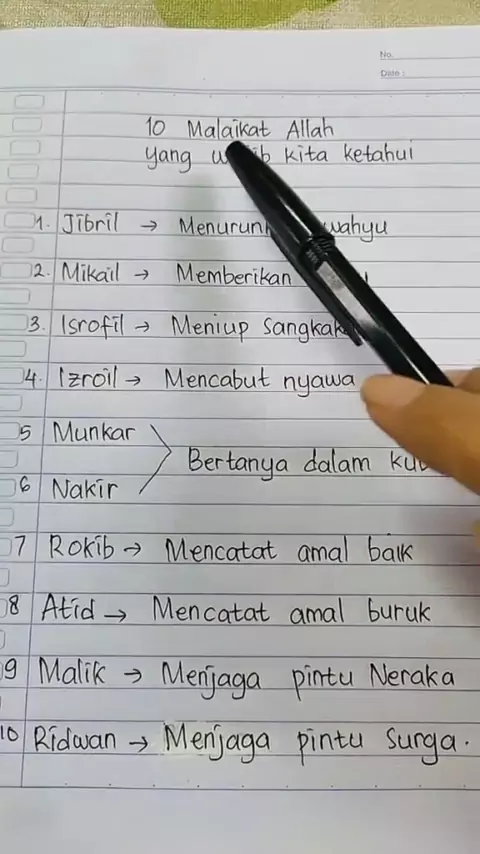 No.
Date :
10 Malaikat Allah
yang kita ketahui
1. Jibril → wahyu
2. Mikail → Memberikan
3. Isrofil → Meniup
4. Izroil → Mencabut nyawa
5 Munkar
Bertanya dalam
6 Nakir
7 Rokib → Mencatat amal baik
8 Atid → Mencatat amal buruk
9 Malik → Menjaga pintu Neraka
10 Ridwan → Menjaga pintu surga.